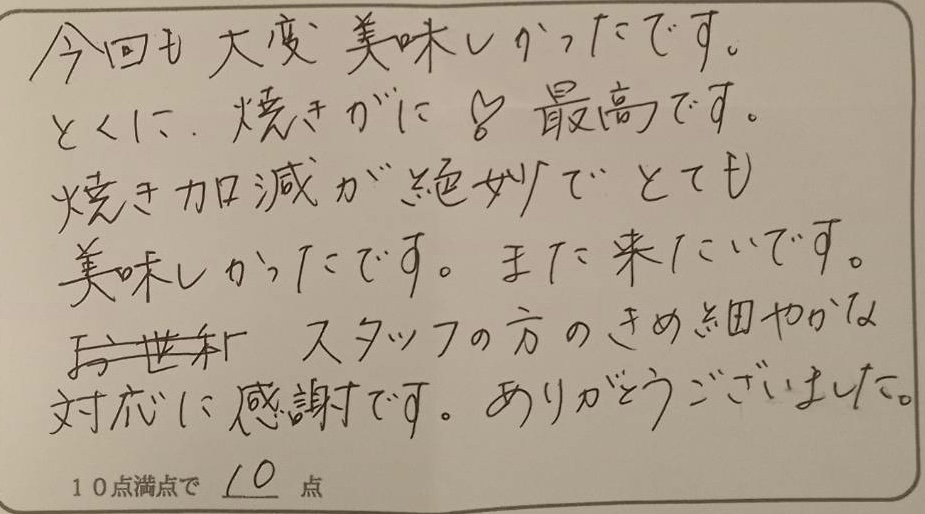 今回も 大変 美味しかったです。
とくに、焼きがに♡ 最高です。
焼き加減が絶妙でとても
美味しかったです。また来たいです。
お世 スタッフの方のきめ細やかな
対応に感謝です。ありがとうございました。
10点満点で 10 点